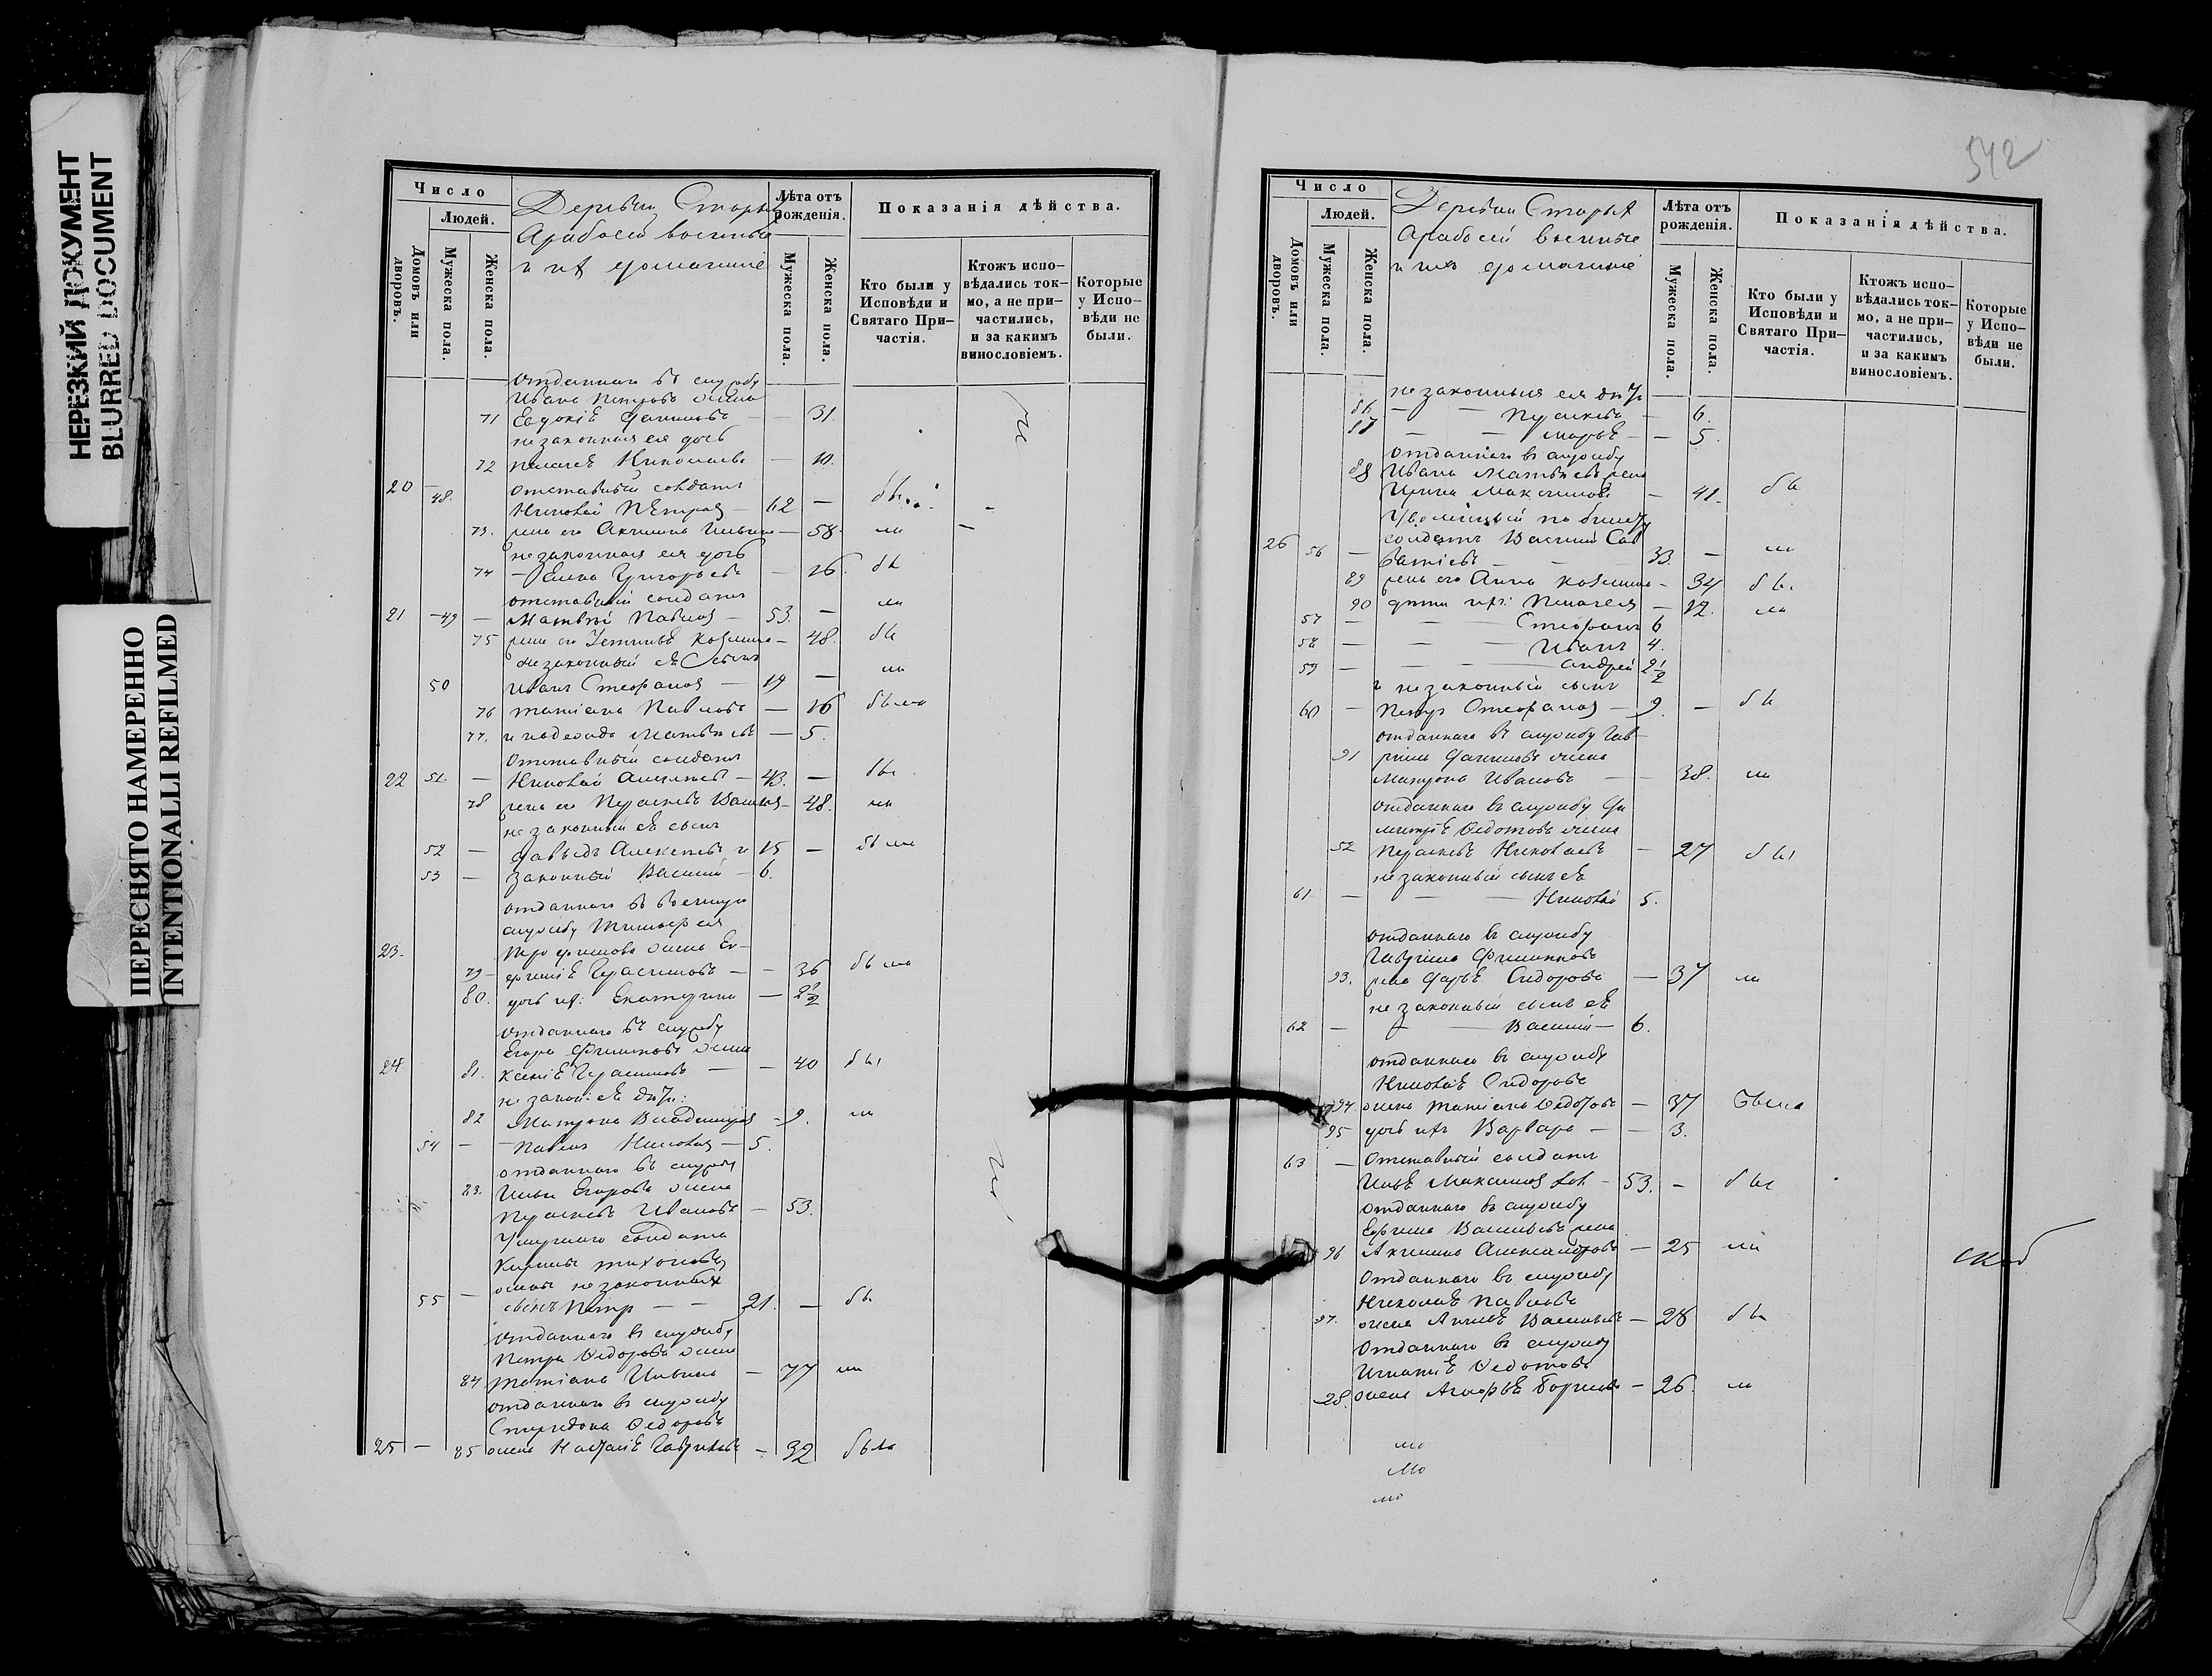 НЕРЕЗКИЙ ДОКУМЕНТ
BLURRED DOCUMENT
ПЕРЕСНЯТО НАМЕРЕННО
INTENTIONALLI REFILMED
Число
Людей.
Домовъ или дворовъ.
Мужеска пола.
Женска пола.
Деревни Старыхъ
Арабосей военные
и ихъ домашніе
Лѣта отъ рожденія.
Мужеска пола.
Женска пола.
Показанія дѣйства.
Кто были у Исповѣди и Святаго При-частія.
Ктожъ испо-вѣдались ток-мо, а не при-частились, и за какимъ винословіемъ.
Которые у Испо-вѣди не были.
отданнаго въ службу
Ивана Петрова жена
71 Евдокія Данилова — 31.
незаконная ея дочь
72 Пелагея Николаева — 10.
отставный солдатъ
20 — 48. Николай Петровъ — 62 —
73. жена его Акилина Ильина — 58.
незаконная ея дочь
74 — Елена Григорьева — 16.
отставный солдатъ
21 — 49 — Матвѣй Павловъ — 53. —
75 жена его Устинья Козмина — 48.
незаконный ея сынъ
50 Иванъ Стефановъ — 19 —
76 Татіана Павлова — 16
77. и Надежда Матвѣева — 5.
Отставный солдатъ
22 51. — Николай Алексеевъ — 43. —
78 жена его Праскева — 48.
незаконный ея сынъ
52 — Давыдъ Алексеевъ и 15 —
53 — законный Василій — 6.
отданнаго въ военную
службу Тимофея
23. Трофимова жена Ев-
79 — фимія Герасимова — — 36
80. дочь ихъ: Екатерина — 2 1/2
отданнаго въ службу
Егора Филипова жена
24 81. Ксенія Герасимова — — 40
незакон: ея дѣти:
82 Матрона — 9.
54 — — Павелъ Николаевъ — 5.
отданнаго въ службу
83. Ильи Егорова жена
Праскева Иванова — 53.
Умершаго солдата
Кирилы Тихонова
жены незаконный
55 — сынъ Петръ — — 21. —
отданнаго въ службу
Петра Ѳедорова жена
84 Татіана Ильина — 77
отданнаго въ службу
Спиридона Ѳедорова
25 — 85 жена Наталія Гаврилова — 32 была
542
Число
Людей.
Домовъ или дворовъ.
Мужеска пола.
Женска пола.
Деревни Старыхъ
Арабосей военные
и ихъ домашніе
Лѣта отъ рожденія.
Мужеска пола.
Женска пола.
Показанія дѣйства.
Кто были у Исповѣди и Святаго При-частія.
Ктожъ испо-вѣдались ток-мо, а не при-частились, и за какимъ винословіемъ.
Которые у Испо-вѣди не были.
незаконныя ея дѣти
86 — — Праскева — 6.
87 — — Марья — — 5.
отданнаго въ службу
88 Ивана Матвѣева жена
Ирина Максимова — 41.
Уволенный по билету
солдатъ Василій Сав-
26 56 — ватіевъ — — 33. —
89 жена его Анна Козмина — 34
90 дѣти ихъ: Пелагея — 12.
57 — — — Стефанъ 6
58 — — — Иванъ 4.
59 — — — Андрей 2 1/2
и незаконный сынъ
60 — Петръ Стефановъ — 9. —
отданнаго въ службу Гав-
91 рила Данилова жена
Матрона Иванова — — 38.
отданнаго въ службу Ди-
митрія Ѳедотова жена
92 Праскева Николаева — 27
незаконный сынъ ея
61 — — — Николай 5.
отданнаго въ службу
Гаврила Филиппова
93. жена Дарья Сидорова — 37
незаконный сынъ ея
62 — — — Василій — 6.
отданнаго въ службу
Николая Сидорова
94. жена Татіана Ѳедотова — 37 была
95 дочь ихъ Варвара — — 3.
63 — Отставный солдатъ
Илья Максимовъ — 53. —
отданнаго въ службу
Ефрема Васильева жена
96 Акилина Александрова — 25
отданнаго въ службу
Николая Павлова
97. жена Васильева — 28
отданнаго въ службу
Игнатія Ѳедотова
28. жена Борисова — 26.